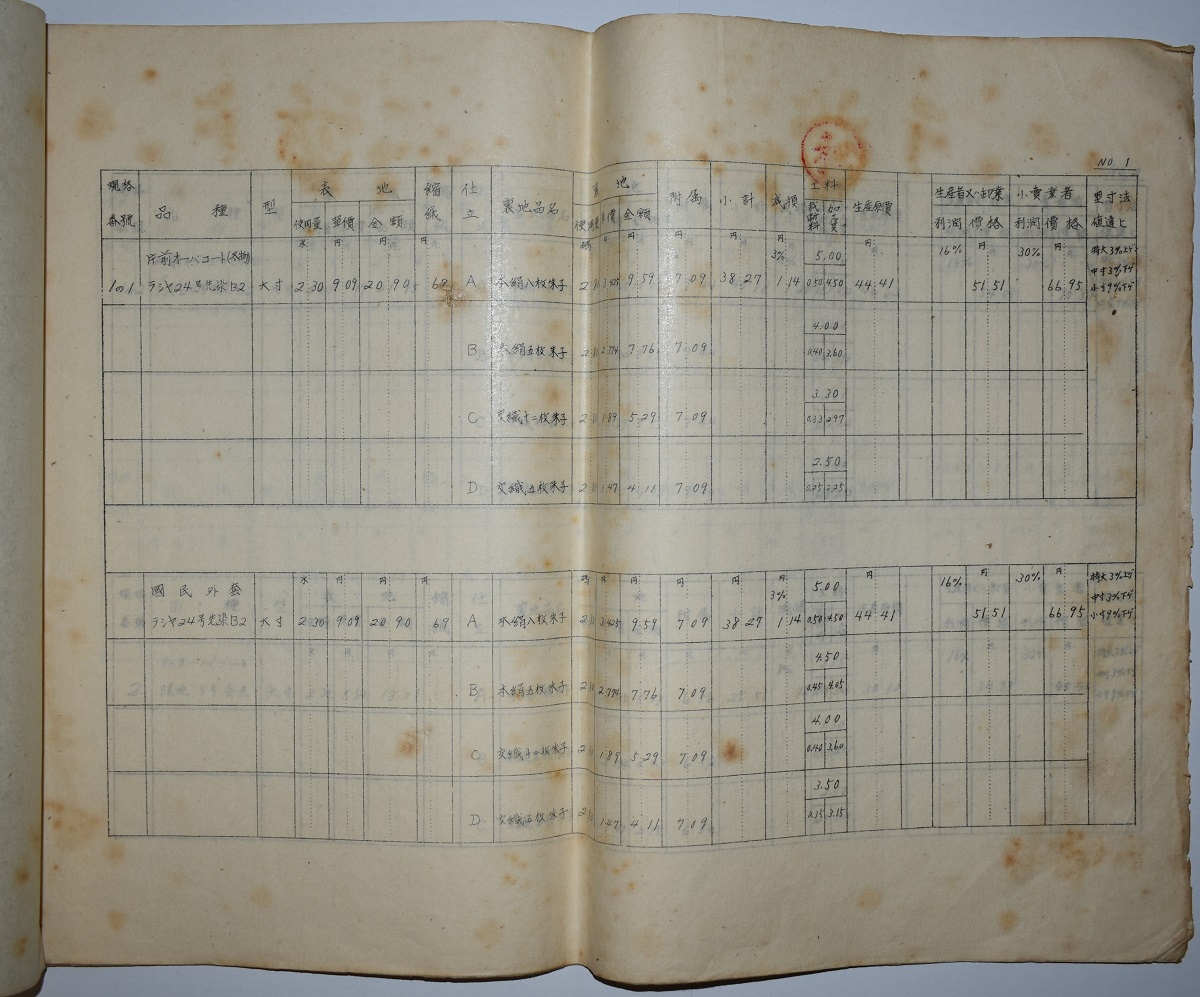 NO. 1
規格番號 品種 型 表地 縮絨 仕立 裏地品名 裏地 附属 小計 減損 工料 生産原價 生産者又ハ卸業 小賣業者 型寸法
使用量 單價 金額 金額 裁断料 加工賃 利潤 價格 利潤 價格 値違ヒ
米 円 円 円 碼 円 円 円 円 3% 5.00 円 16% 円 30% 円 特大3%上ゲ
片前オーバコート(冬物) 中寸3%下ゲ
1の1 ラシヤ24号先染B2 大寸 2.30 9.09 20.90 69 A 本絹八枚朱子 9.59 7.09 38.27 1.14 0.50 4.50 44.41 51.51 66.95 小寸9%下ゲ
4.00
B 本絹五枚朱子 7.76 7.09 0.40 3.60
3.30
C 交織十二枚朱子 1.89 5.29 7.09 0.33 2.97
2.50
D 交織五枚朱子 1.47 4.11 7.09 0.25 2.25
米 円 円 円 碼 円 円 円 円 3% 5.00 円 16% 円 30% 円 特大3%上ゲ
國民外套 中寸3%下ゲ
ラシヤ24号先染B2 大寸 2.30 9.09 20.90 69 A 本絹八枚朱子 3.425 9.59 7.09 38.27 1.14 0.50 4.50 44.41 51.51 66.95 小寸9%下ゲ
4.50
B 本絹五枚朱子 2.774 7.76 7.09 0.45 4.05
4.00
C 交織十二枚朱子 1.89 5.29 7.09 0.40 3.60
3.50
D 交織五枚朱子 1.47 4.11 7.09 0.35 3.15